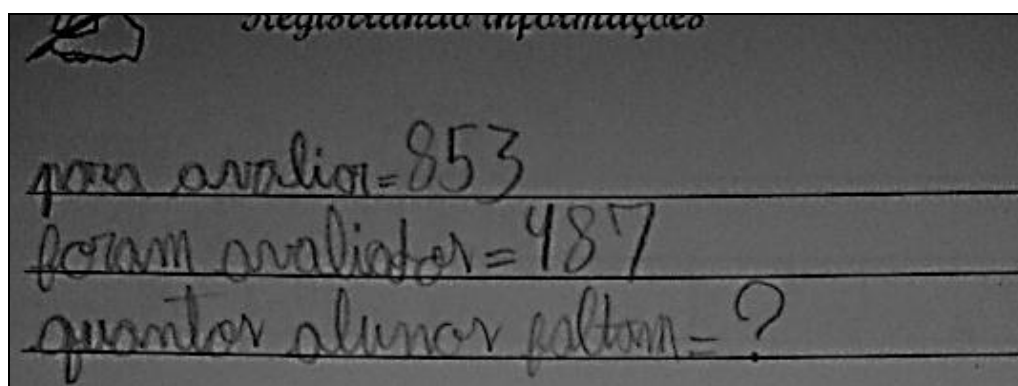 Registrando informações
para avaliar=853
foram avaliados=487
quantos alunos faltam=?